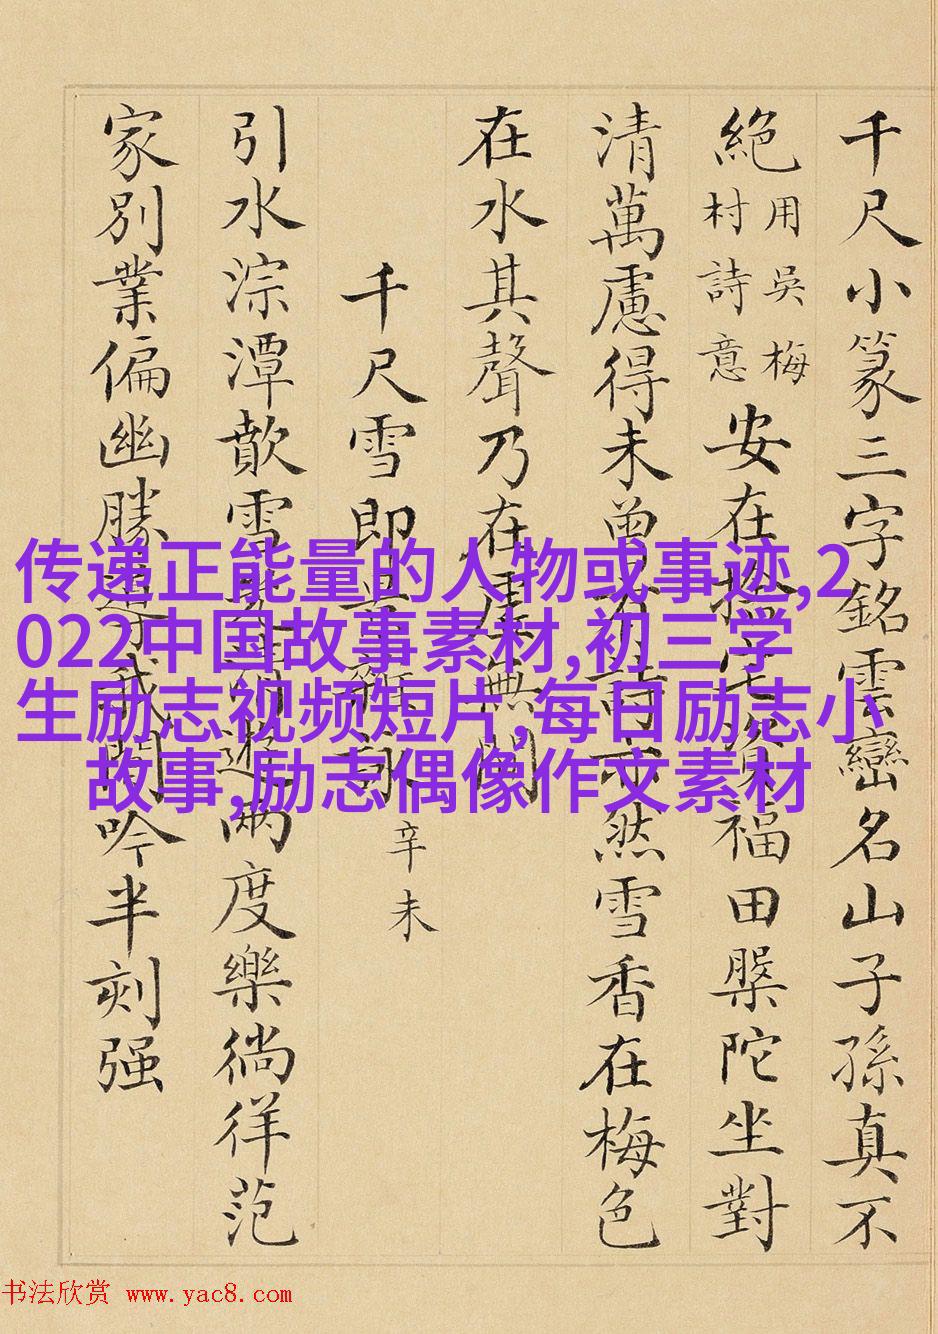 千尺小篆三字銘雲巒名山子孫真不
絕
用吳梅
村詩意
安在宅福田槃陀坐對
清萬慮得未曾有詩亦然雪香在梅色
在水其聲乃在虛無間
千尺雪即景雜詠
辛未
引水淙潭歕雪遊兩度樂徜徉范
家別業偏幽勝導我閒吟半刻强
传递正能量的人物或事迹,2
022中国故事素材,初三学
生励志视频短片,每日励志小
故事,励志偶像作文素材
书法欣赏 www.yac8.com